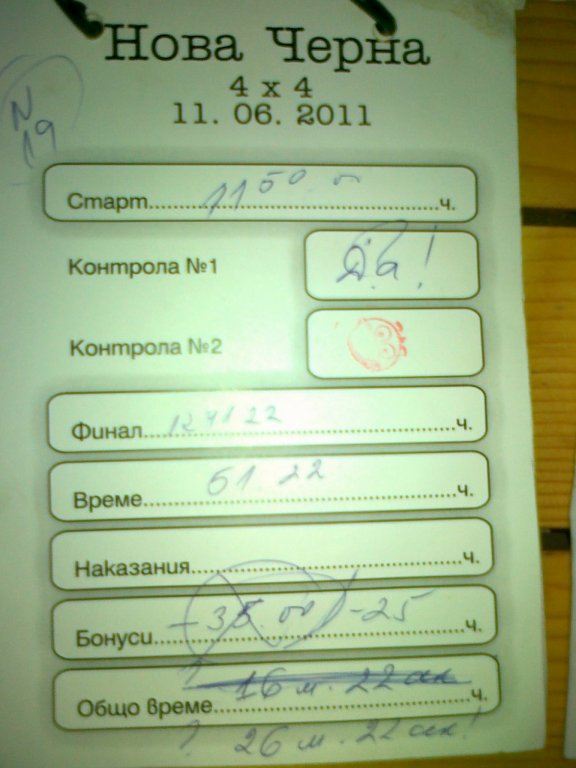 Нова Черна
4 x 4
11. 06. 2011
N
19
Старт 11 50 ч.
Контрола №1 Да!
Контрола №2
Финал 12 41 22 ч.
Време 51 22 ч.
Наказания ч.
Бонуси -35.00 -25 ч.
Общо време 16 м. 22 сек ч.
? 26 м. 22 сек!